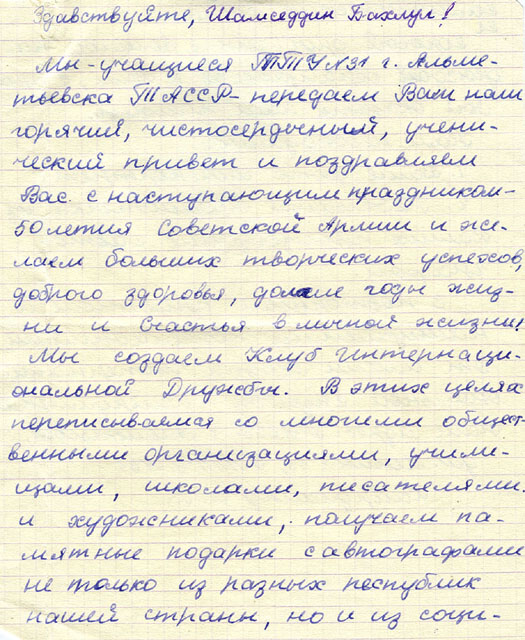 Здравствуйте, Шамседдин Бахлул!
Мы - учащиеся ТТУ №31 г. Альме-
тьевска ТАССР - передаем Вам наш
горячий, чистосердечный, учени-
ческий привет и поздравляем
Вас с наступающим праздником -
50 летия Советской Армии и же-
лаем больших творческих успехов,
доброго здоровья, годы жиз-
ни и счастья в личной жизни!
Мы создаем Клуб Интернаци-
ональной Дружбы. В этих целях
переписываемся со многими общест-
венными организациями, учили-
щами, школами, писателями.
и художниками, получаем па-
мятные подарки с автографами
не только из разных республик
нашей страны, но и из соци-